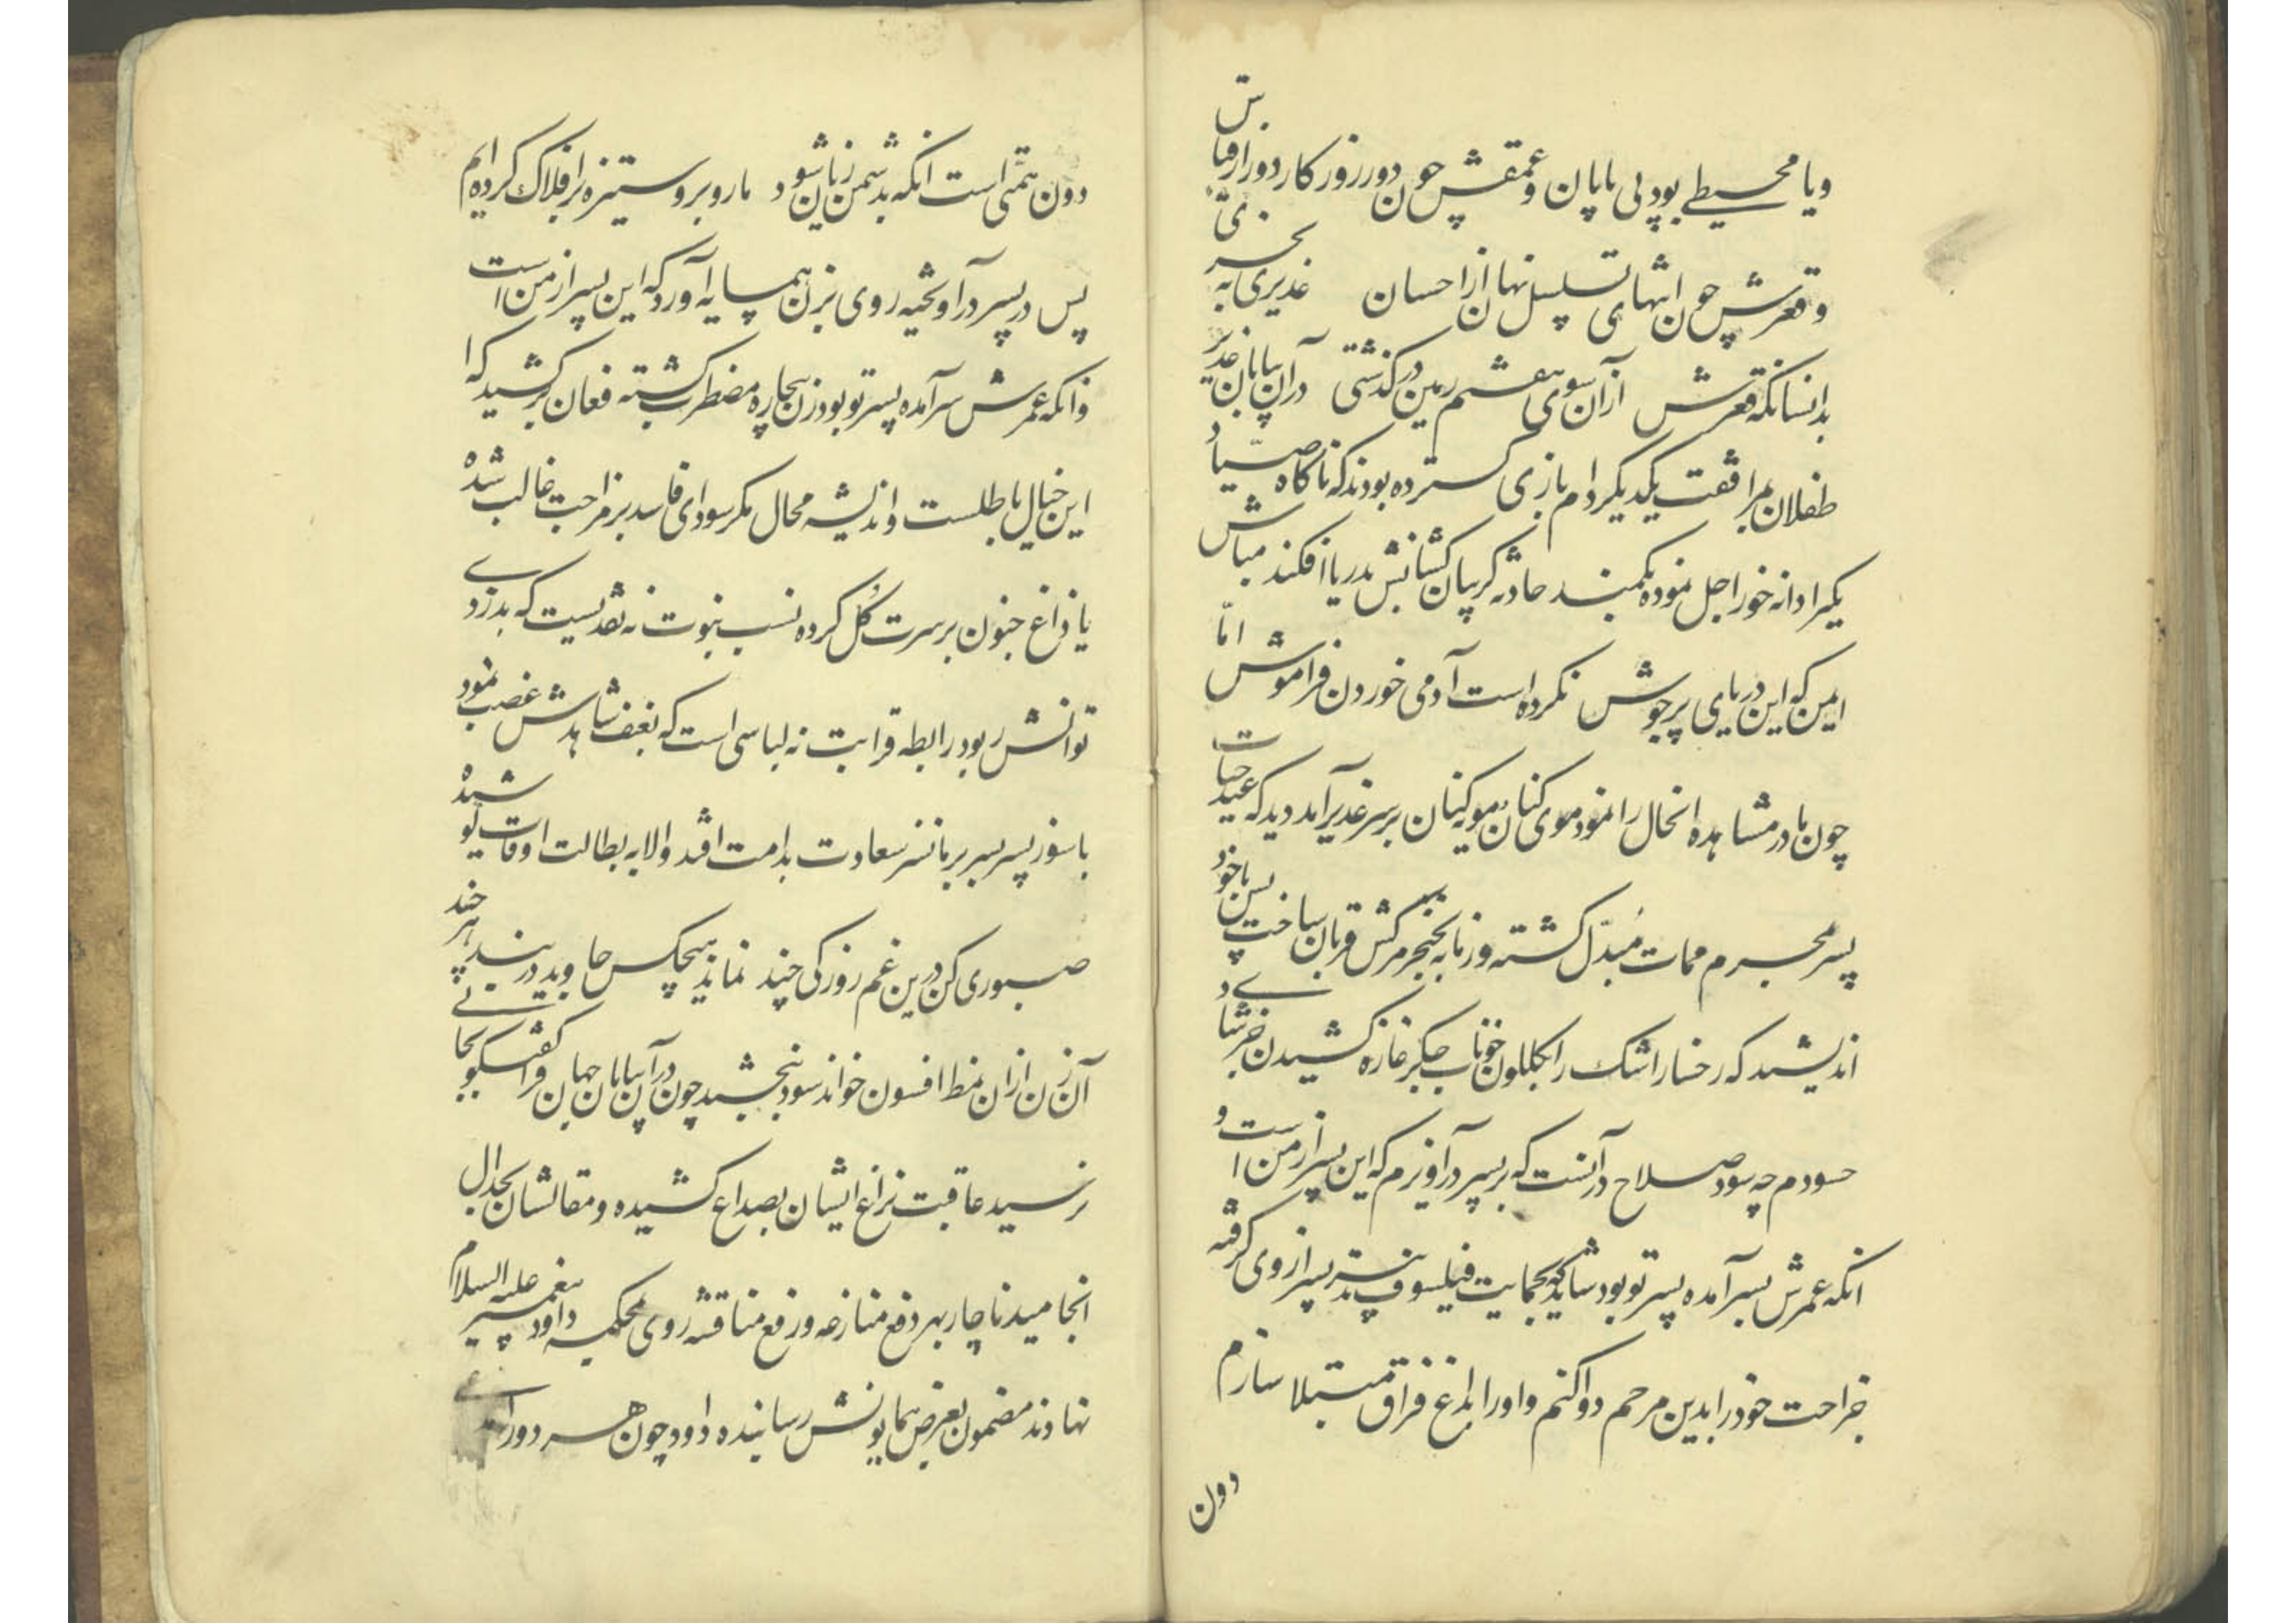 ویا محیطے بود بی پایان و عمقش چون دور روزکار دور از قیاس
و قعرش چون انتهای تسلسل نهان از احسان غدیری به بحری
بدانسانکه قعرش از آن سوی هفتم زمین در کذشتی در آن پایان غدیر
طفلان بمرافقت یکدیکر دام بازی کسترده بودند که ناکاه صیاد
یکیرا دانه خور اجل نموده بکمند حادثه کریبان کشانش بدریا افکند مباش
ایمن که این دریای پرجوش نکرده است آدمی خوردن فراموش امّا
چون مادر مشاهده انحال را نمود موی کنان مویه کنان بر سر غدیر آمد دید که عید حیات
پسر بمحرم ممات مُبدّل کشته و زمانه بخنجر مرکش قربان ساخت پس با خود
اندیشید که رخسار اشک را بکلکون خوناب جکر غازه کشیدن و خرشا
حسودم چه سود صلاح در آنست که بر پسر درآویزم که این پسر از من است و
انکه عمرش بسر آمده پسر تو بود شاید که بحمایت فیلسوف پسر از وی کرفته
جراحت خود را بدین مرحم دوا کنم و او را بداغ فراق مبتلا سازم
دون
دون همتی است انکه بدشمن زبان شود ما رو برو ستیزه بر افلاک کرده ایم
پس در پسر درآویخته روی بزن همسایه آورد که این پسر از من است
وانکه عمرش سرآمده پسر تو بود زن بیچاره مضطرب کشته فغان برکشید که ا
این خیال باطلست و اندیشه محال مکر سودای فاسد بر مزاجت غالب شده
یا داغ جنون بر سرت کُل کرده نسب بنوت نه نقدیست که بدزدے
توانش ربود رابطه قرابت نه لباسی است که بعنف شاهدش غصب نمود
با سوز پسر بسر بر مانند سعادت بدامت افتد والا به بطالت اوقات تو شد
صبوری کن درین غم روزکی چند نماند هیچکس جاوید در بند هر چند
آن زن از ان نمط افسون خواند سود نبخشید چون در آن بیابان جهان فراکفتکو بجائے
نرسید عاقبت نزاع ایشان بصداع کشیده و مقالشان بجدال
انجامید ناچار بهر دفع منازعه و رفع مناقشه روی بمحکمه داود پیغمبر علیه السلام
نهادند مضمون بعرض همایونش رسانیده داود چون هر دو را